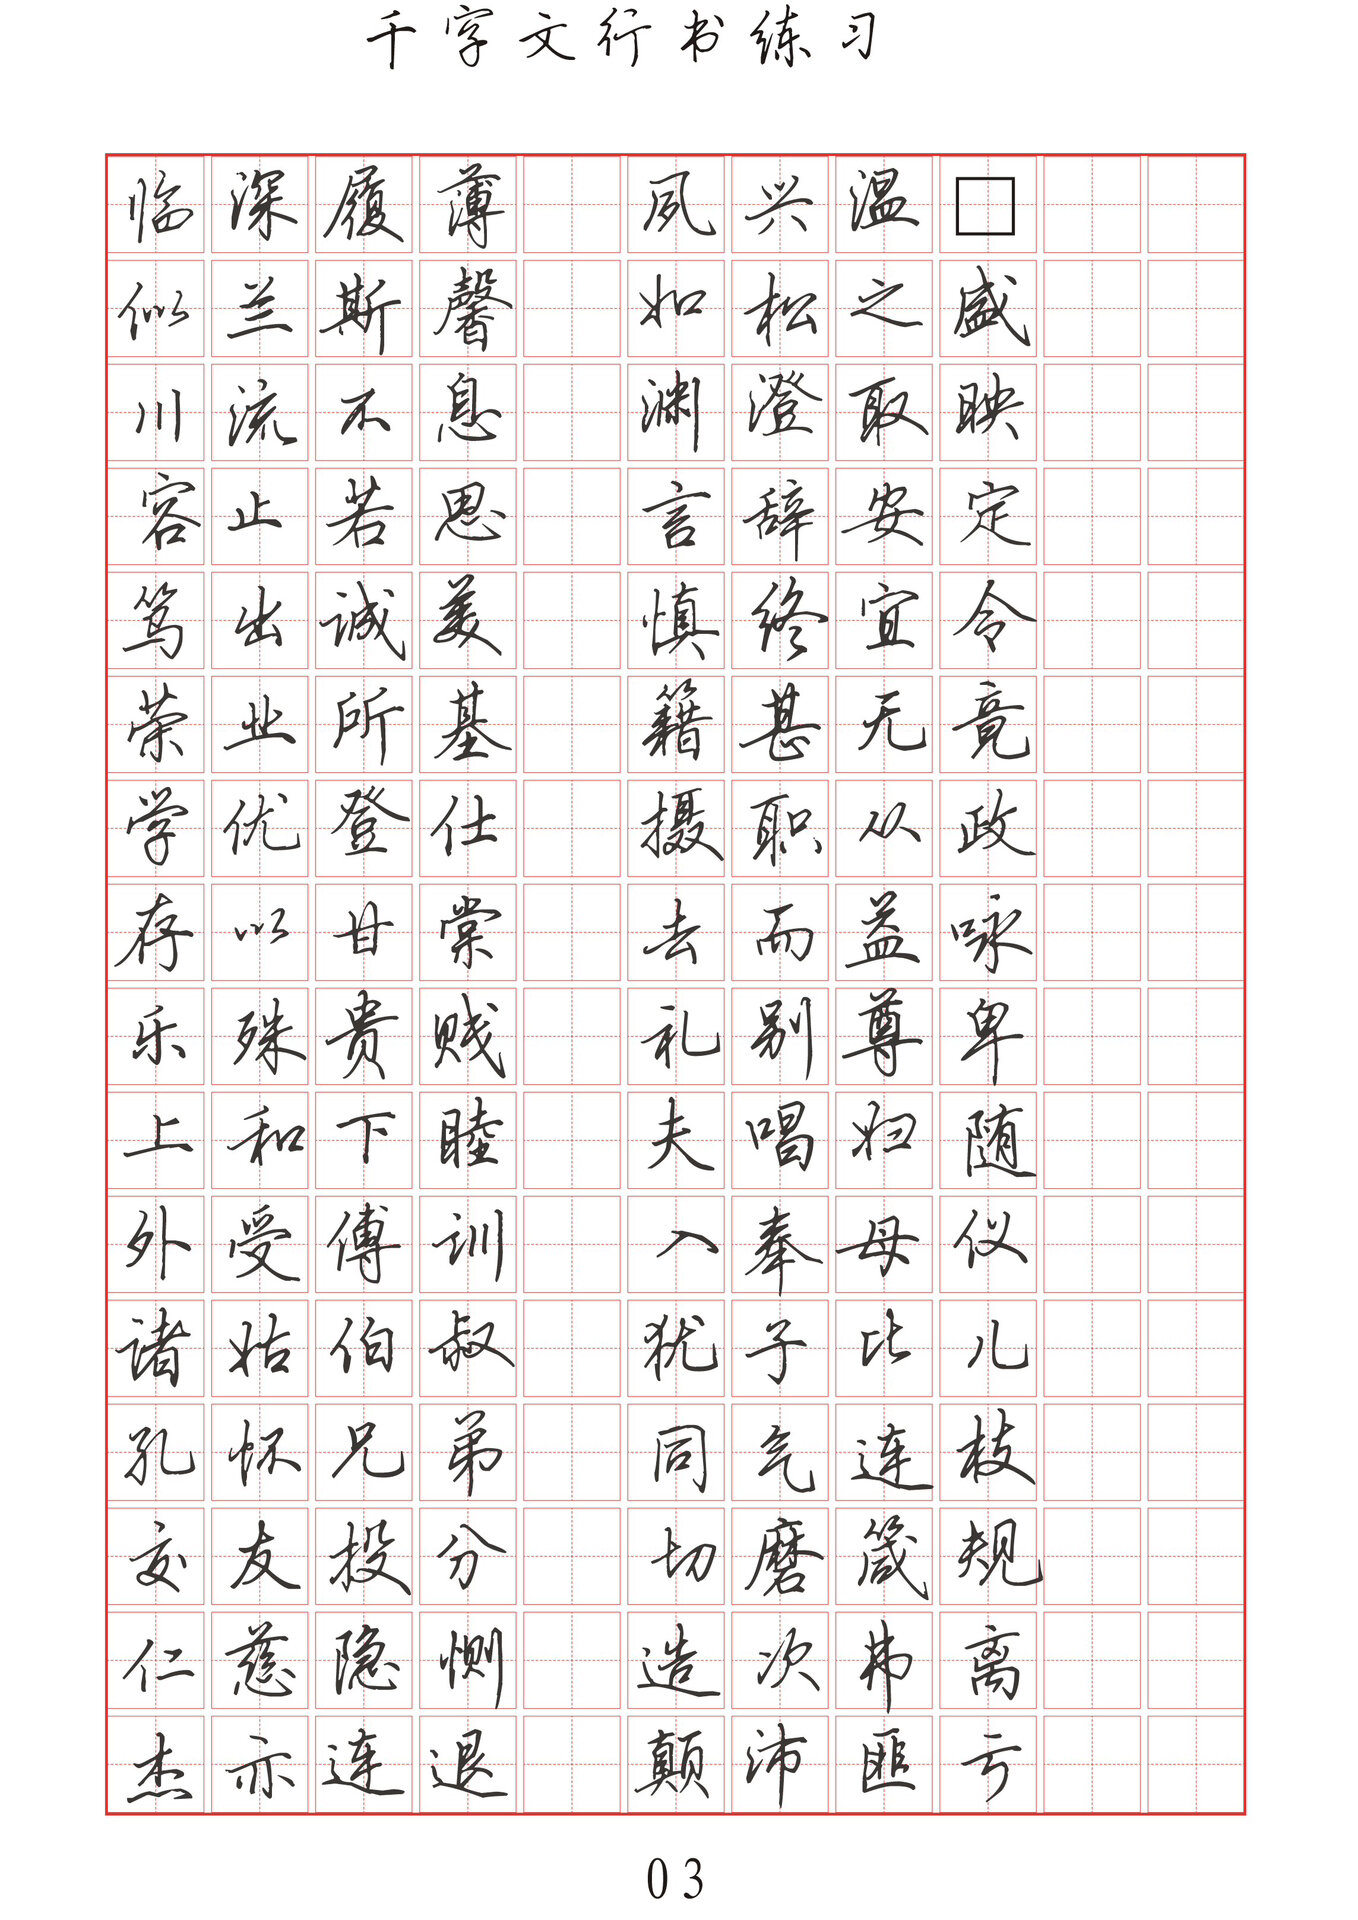 千字文行书练习
临深履薄 夙兴温□
似兰斯馨 如松之盛
川流不息 渊澄取映
容止若思 言辞安定
笃出诚美 慎终宜令
荣业所基 籍甚无竟
学优登仕 摄职从政
存以甘棠 去而益咏
乐殊贵贱 礼别尊卑
上和下睦 夫唱妇随
外受傅训 入奉母仪
诸姑伯叔 犹子比儿
孔怀兄弟 同气连枝
交友投分 切磨箴规
仁慈隐恻 造次弗离
杰亦连退 颠沛匪亏
03